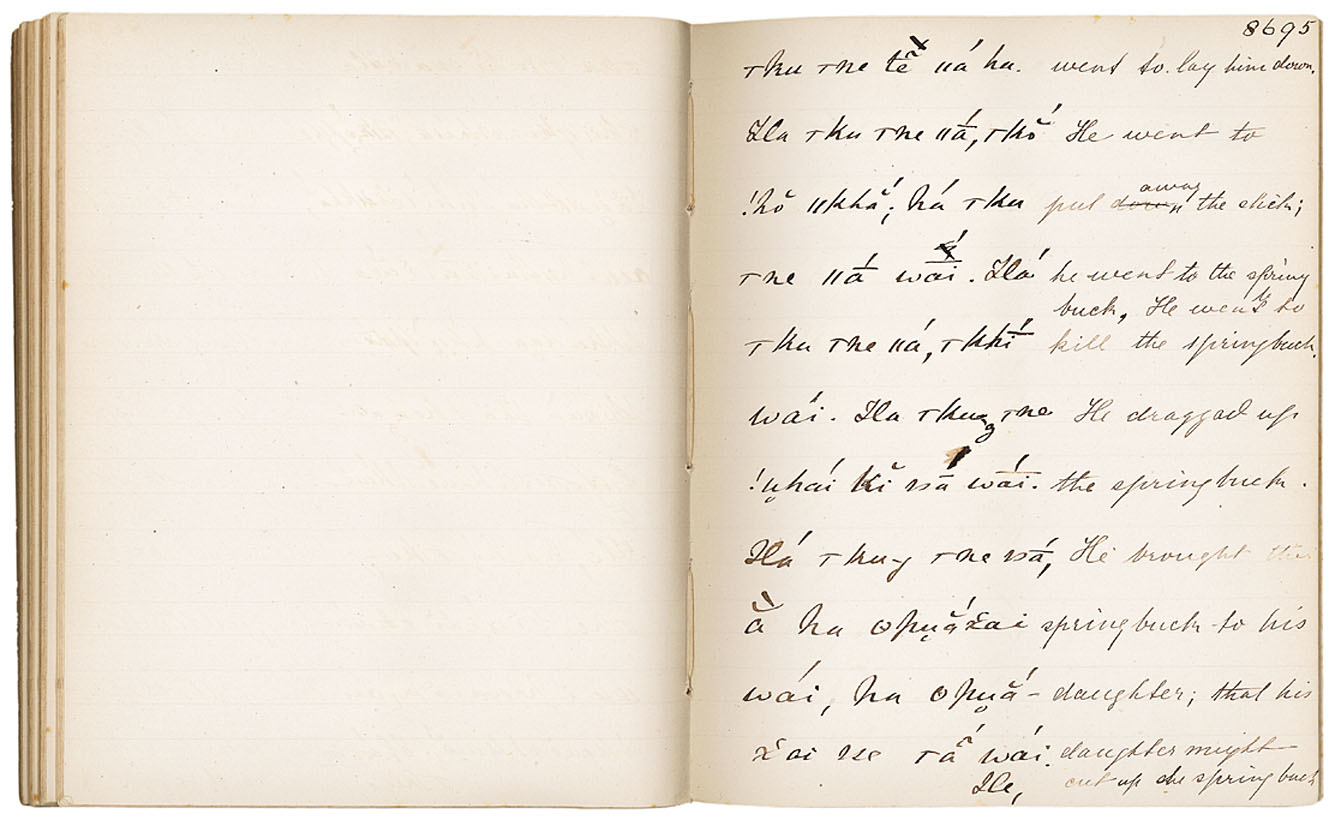 8695
τku τne tẽ̀ ǁá ha. went to lay him down.
Ha τku τne ǁā́, τkŏ́ He went to
away
!hŏ ǁkhắ; há τku put down the stick;
τne ǁā́ wā́i. Há he went to the spring
buck, He went to
τku τne ǁá, τkhī́ kill the springbuck.
wái. Ha τku-g τne He dragged up
!u̥hái kĭ sā́ wā́i. the springbuck.
Há τku-g τne sā́, He brought the
ắ ha ʘpu̥ắxai springbuck to his
wái, ha ʘpu̥ắ- daughter; that his
xai se τā́ wái. daughter might
He, cut up the springbuck